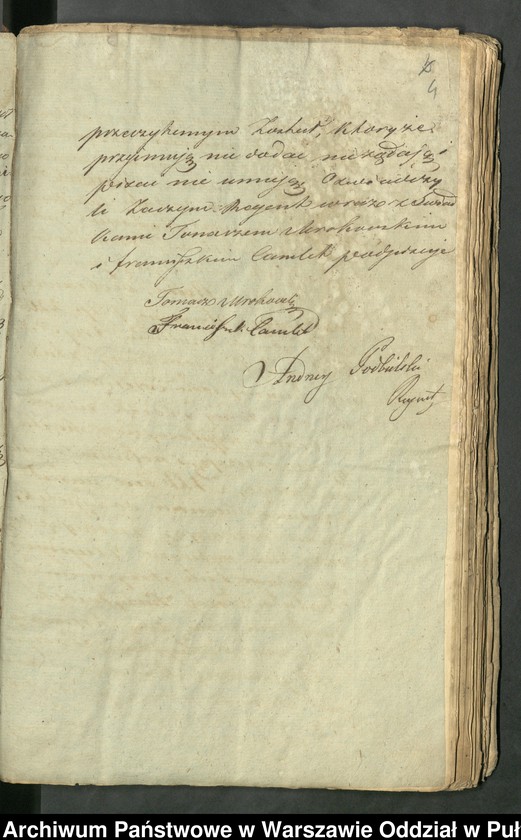 4
przeczytanym został, który że
przyimują nic dodać nie żądają i
pisać nie umieją Oświadczy
li Zaczym Regent wraz z Świad
kami Tomaszem Mrokowskim
i franciszkiem Camlet podpisuje
Tomasz Mrokowski
Franciszek Camlet
Andrzey Podbielski
Regent
Archiwum Państwowe w Warszawie Oddział w Puł